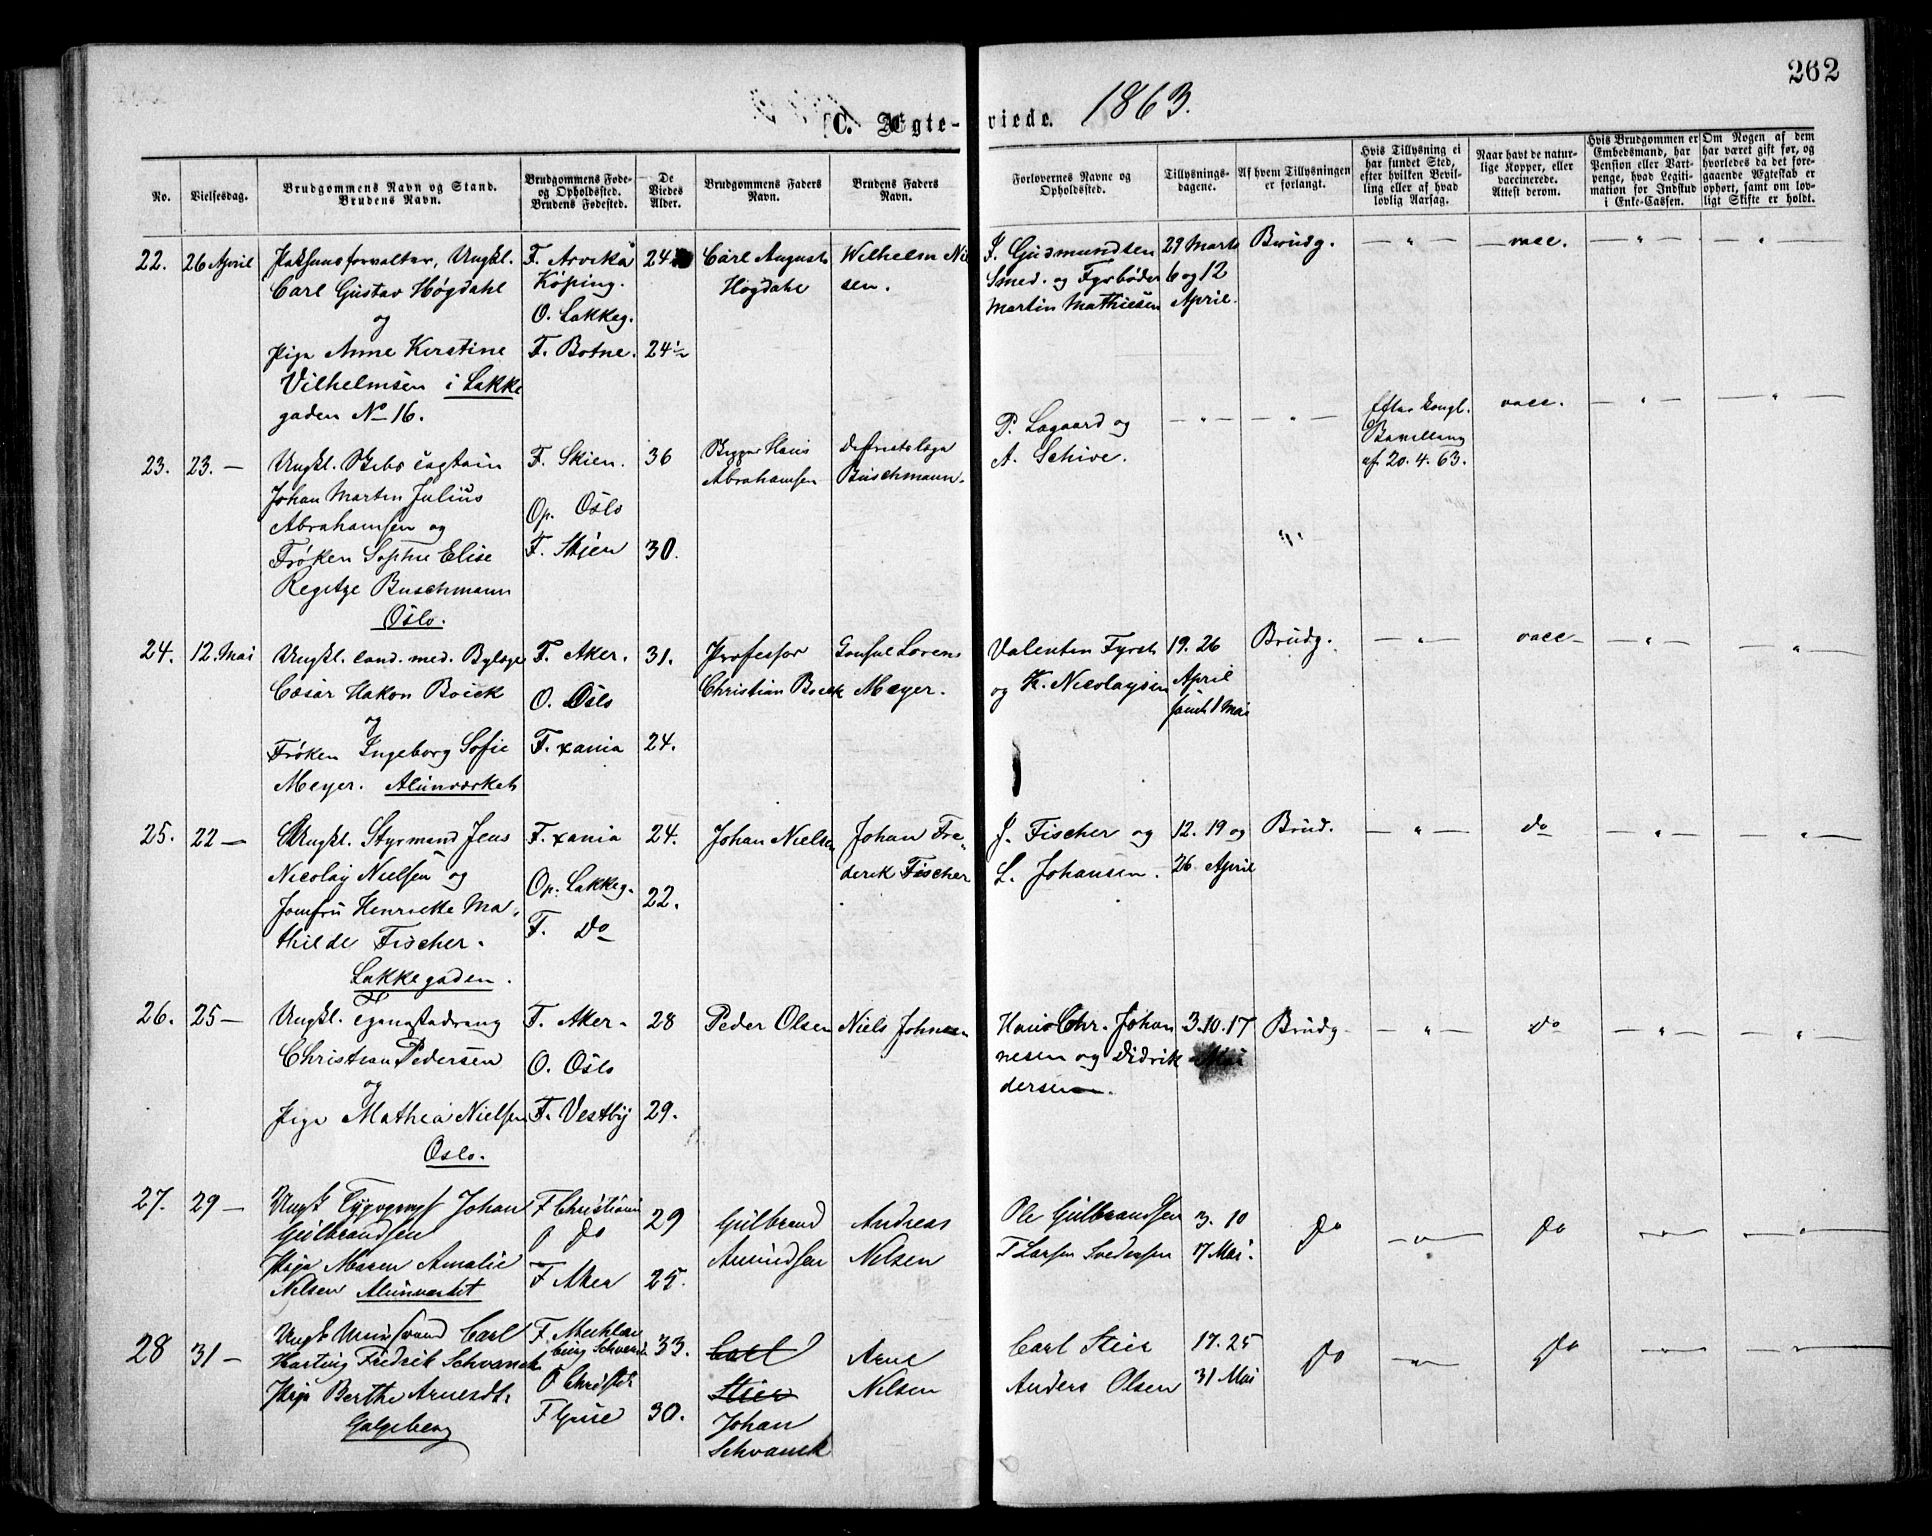 262
C. Ægte-viede. 1863.
No.
Vielsesdag.
Brudgommens Navn og Stand.
Brudens Navn.
Brudgommens Føde-
og Opholdssted.
Brudens Fødested.
De
Viedes
Alder.
Brudgommens Faders
Navn.
Brudens Faders
Navn.
Forlovernes Navne og
Opholdssted.
Tillysnings-
dagene.
Af hvem Tillysningen
er forlangt.
Hvis Tillysning ei
har fundet Sted,
efter hvilken Bevil-
ling eller af hvad
lovlig Aarsag.
Naar havt de natur-
lige Kopper, eller
vaccinerede.
Attest derom.
Hvis Brudgommen er
Embedsmand, har
Pension eller Vart-
penge, hvad Legiti-
mation for Indskud
i Enke-Cassen.
Om Nogen af dem
har været gift før, og
hvorledes da det fore-
gaaende Ægteskab er
ophørt, samt om lov-
ligt Skifte er holdt.
22.
26 April
Ungkl.
Carl Gustav Høgdahl
og
Pige Anne Kirstine
Vilhelmsen i Lakke
gaden No 16.
F. Arvika
Köping.
O. Lakkeg.
F. Botne.
24
24½
Carl August
Høgdahl
Wilhelm Niel
sen.
J. Gudmundsen
Smed. og Fyrbøder
Martin Mathiesen
29 Marts
6 og 12
April.
Brudg.
— " —
vacc.
— " —
— " —
23.
23. —
Ungkl. Skibscaptain
Johan Martin Julius
Abrahamsen og
Frøken Sophie Elise
Regitze Buschmann
Oslo.
F. Skien.
Op. Oslo
F. Skien
36
30.
Hans
Abrahamsen
Districtslæge
Buschmann.
P. Lagaard og
A. Schive.
— " —
— " —
Efter kongl.
Bevilling
af 20. 4. 63.
vacc.
— " —
— " —
24.
12. Mai
Ungkl. cand. med. Bylæge
Cæsar Hakon Boeck
og
Frøken Ingeborg Sofie
Meyer. Alunværket
F. Aker.
O. Oslo
F. xania
31.
24.
Professor
Christian Boeck
Consul Lorens
Meyer.
Valentin Fyrst
og K. Nicolaysen
19. 26
April
samt 1 Mai
Brudg.
— " —
vacc —
— " —
— " —
25.
22 —
Ungkl. Styrmand Jens
Nicolay Nielsen og
Jomfru Henriette Ma-
thilde Fischer.
Lakkegaden.
F. xania
Op. Lakkeg.
F. Do
24.
22.
Johan Nielsen
Johan Fre-
derik Fischer
J. Fischer og
L. Johansen.
12. 19 og
26. April
Brud.
— " —
Do
— " —
— " —
26.
25 —
Ungkl. Tjenestedreng
Christian Pedersen
og
Pige Mathea Nielsen
Oslo.
F. Aker.
O. Oslo
F. Vestby
28
29.
Peder Olsen
Niels Johnsen
Hans Chr. Johan
nesen og Didrik
dersen.
3. 10. 17
Mai
Brudg.
— " —
Do
— " —
— " —
27.
29 —
Ungk Typograf Johan
Gulbrandsen
Pige Maren Amalie
Nelsen Alunværket
F Christiania
O Do
F Aker
29
25.
Gulbrand
Amundsen
Andreas
Nelsen
Ole Gulbrandsen
T Larsen Svedensen
3. 10
17 Mai.
Do
— " —
Do
— " —
— " —
28
31 —
Ungk Carl
Harting Fredrik Schvanck
Pige Berthe Arnesdt.
Galgeberg
F. Mechlen
burg Schverin
O Christ.
F
33.
30.
Carl
Stier
Johan
Schvanck
Arne
Nelsen
Carl Stier
Anders Olsen
17. 25
31 Mai
Do
— " —
Do
— " —
— " —